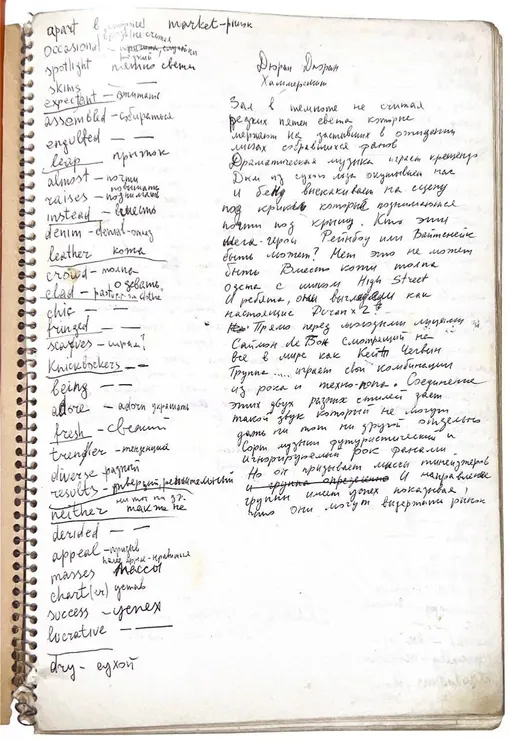 apart в market - рынок
не считая
occasional - случайн
редкий
spotlight пятно света
skims — —
expectant - ожидать
assembled - собираться
engulfed — —
leap прыжок
almost - почти
повышать
raises - поднимать
instead - вместо
denim -
leather кожа
crowd - толпа
одевать,
clad -
chic — —
fringed — —
scarves - шраф?
Knickbockers — —
being — —
adore - adorn украшать
fresh - свежий
trendier - тенденция
diverse разный
results -
neither ни тот ни др.
также не
derided — —
appeal - призыв
нравиться
masses массы
chart(er) устав
success - успех
lucrative — —
dry - сухой
Дюран Дюран
Хаммерсмит
Зал в темноте не считая
редких пятен света которые
мерцают на заставших в ожидании
лицах собравшихся фанов
Драматическая музыка играет крещендо
Дым из сухого льда окутывает нас
и бенд выскакивает на сцену
под крики которые поднимаются
почти под крышу. Кто эти
мега-герои Рейнбоу или Вайтснейк
быть может? Нет это не может
быть Вместо кожи толпа
одета с шиком High Street
и ребята, они выглядели как
настоящие Duran x 2?
Прямо перед молодыми лицами
Саймон де Бон смотрящий на
все в мире как Кейт Чегвин
Группа .... играет свои комбинации
из рока и техно-попа. Соединение
этих двух разных стилей дает
такой звук который не могут
дать ни тот ни другой отдельно
Сорт музыки футуристический и
игнорируемый рок фанами.
Но он призывает массы тинейджеров
и группа определенно и направление
группы имеет успех показывая!
что они могут выдержать рынок